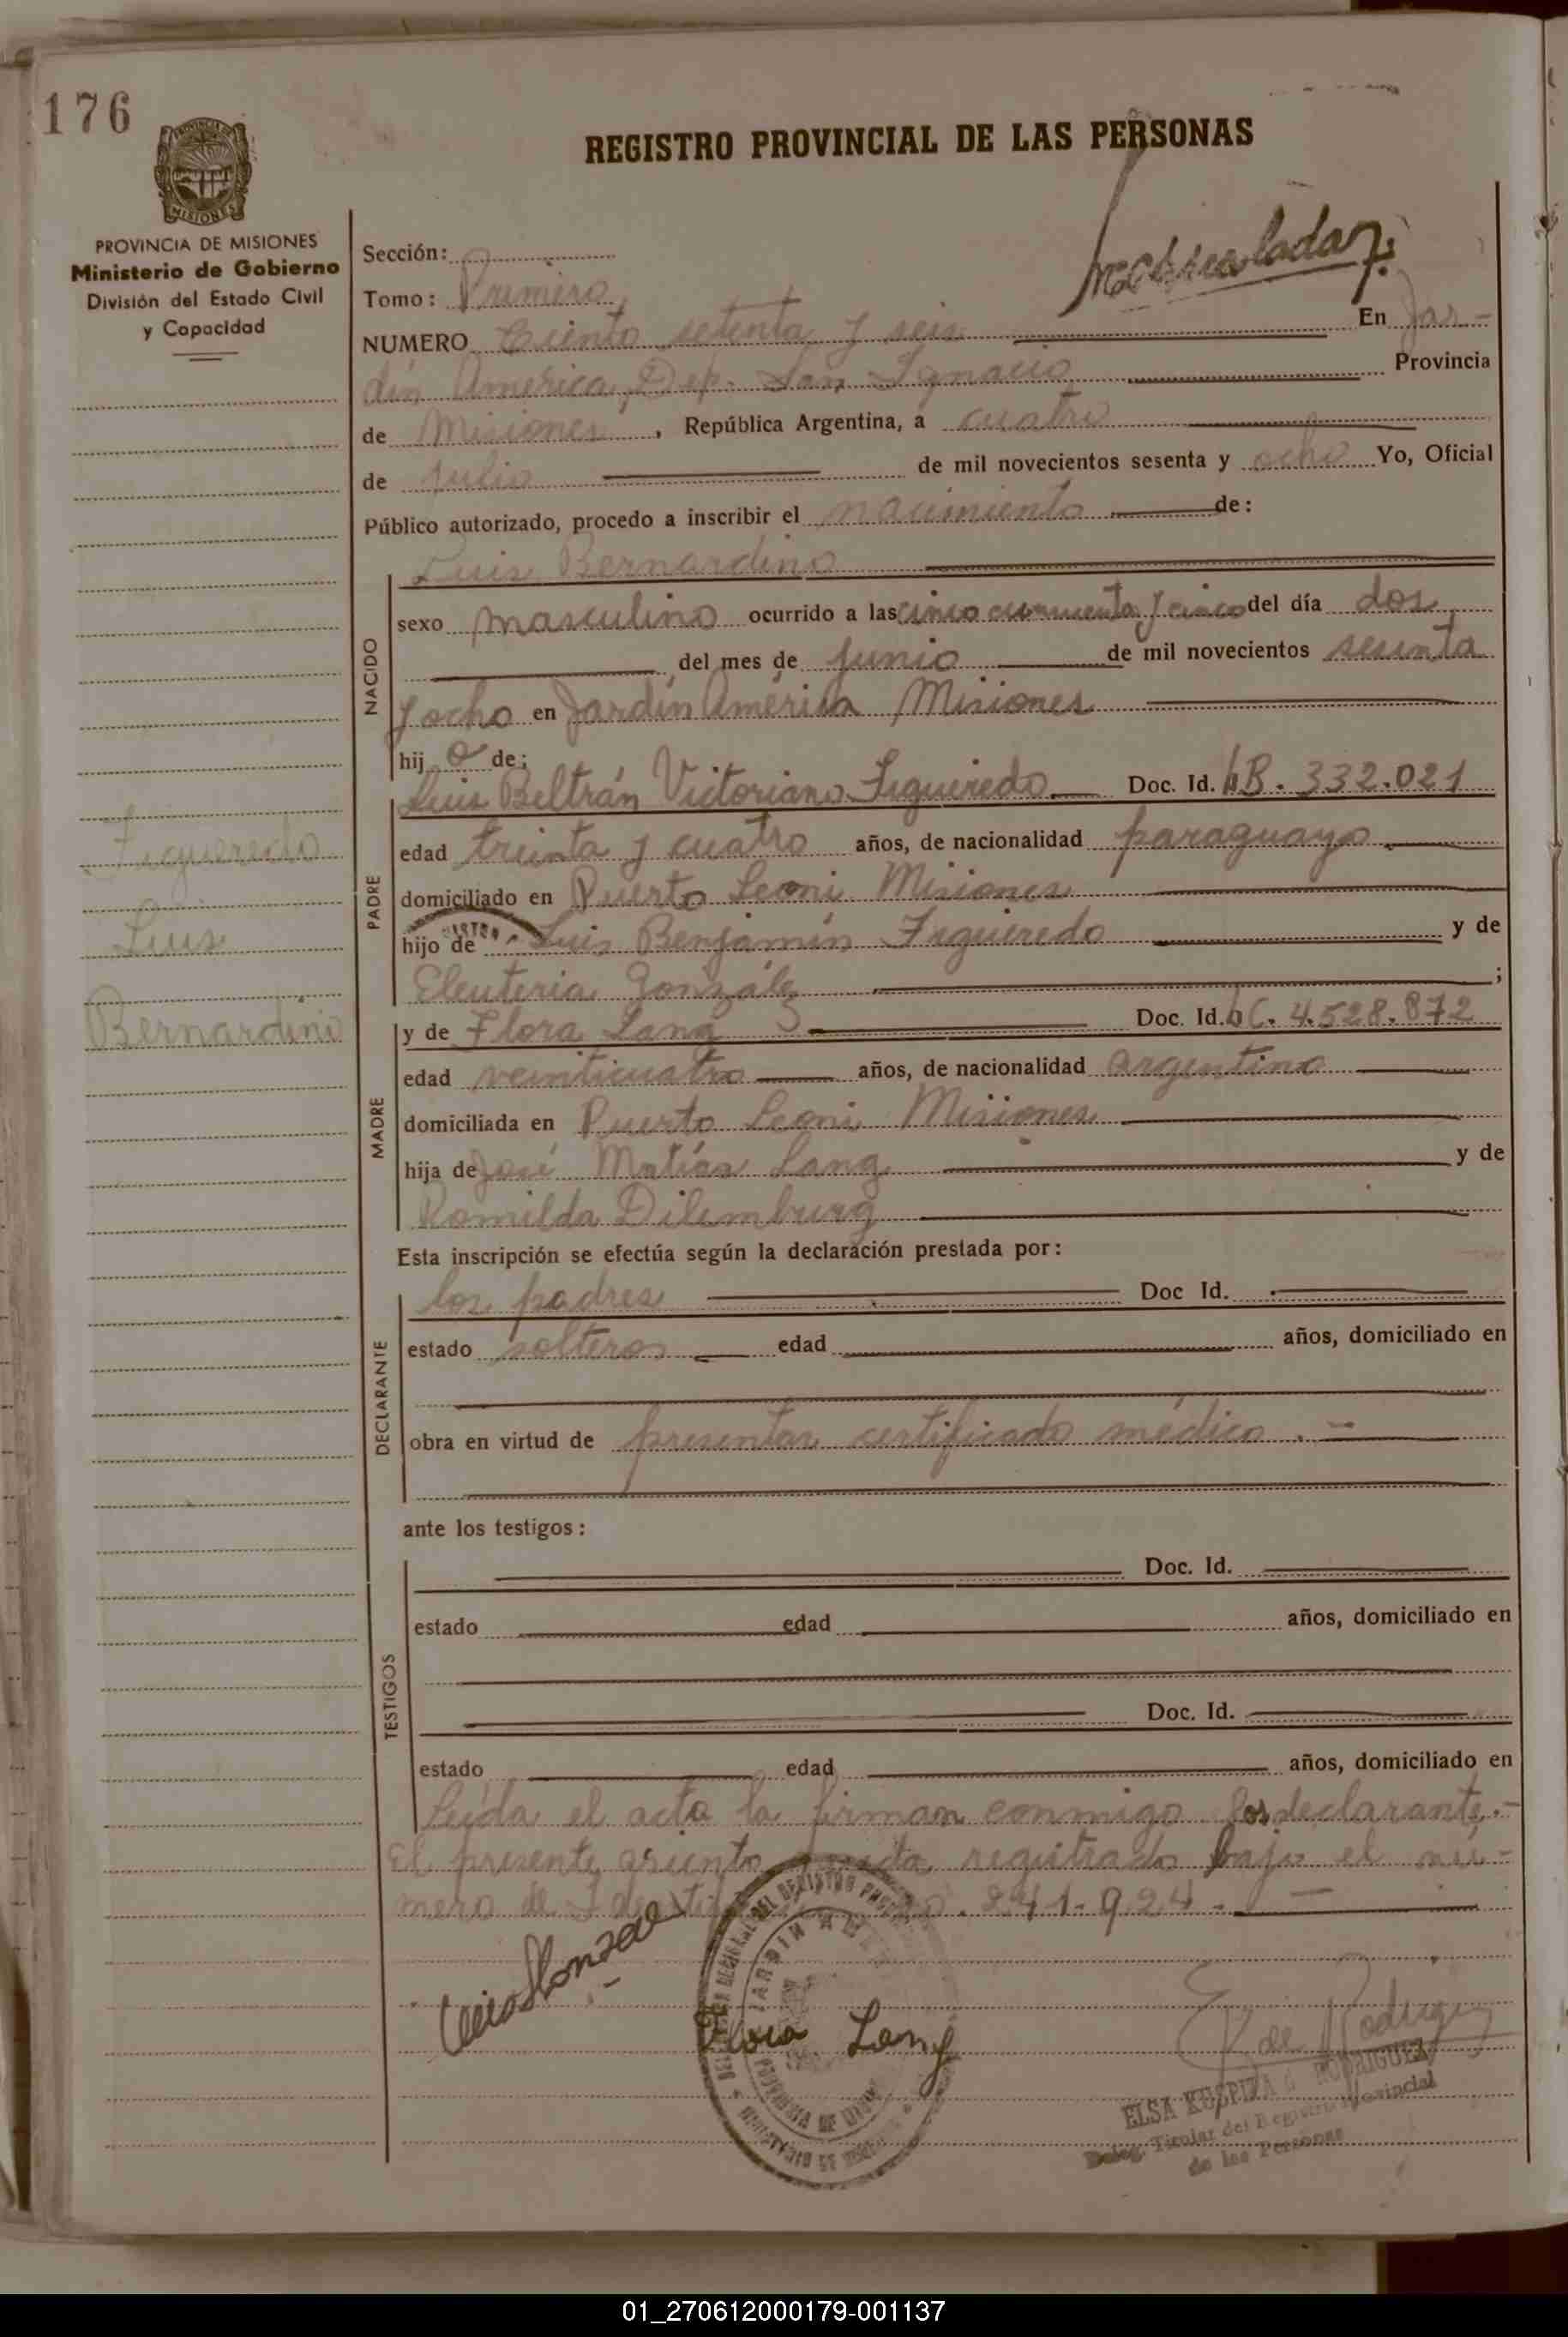 176
REGISTRO PROVINCIAL DE LAS PERSONAS
PROVINCIA DE MISIONES
MISIONES
PROVINCIA DE MISIONES
Ministerio de Gobierno
División del Estado Civil
y Capacidad
Sección:
Tomo: Primero
NUMERO Ciento setenta y seis En Jar-
dín América, Dep. San Ignacio Provincia
de Misiones, República Argentina, a cuatro
de julio de mil novecientos sesenta y ocho Yo, Oficial
Público autorizado, procedo a inscribir el nacimiento de:
Luis Bernardino
NACIDO
sexo masculino ocurrido a las cinco cincuenta y cinco del día dos
del mes de junio de mil novecientos sesenta
y ocho en Jardín América Misiones
hij o de:
Luis Beltrán Victoriano Figueredo Doc. Id. B. 332.021
PADRE
edad treinta y cuatro años, de nacionalidad paraguayo
domiciliado en Puerto Leoni Misiones
hijo de Luis Benjamín Figueredo y de
Eleuteria González ;
y de Flora Lang Doc. Id. C. 4.528.872
MADRE
edad veinticuatro años, de nacionalidad argentina
domiciliada en Puerto Leoni Misiones
hija de José Matías Lang y de
Romilda Dilemburg
Esta inscripción se efectúa según la declaración prestada por:
los padres Doc Id.
DECLARANTE
estado solteros edad años, domiciliado en
obra en virtud de presentar certificado médico.-
ante los testigos:
TESTIGOS
Doc. Id.
estado edad años, domiciliado en
Doc. Id.
estado edad años, domiciliado en
Leída el acta la firman conmigo los declarante.-
El presente asiento registrado bajo el nú-
mero de 241.924.-
Flora Lang
E K de Rodriguez
ELSA RODRIGUEZ
Deleg. Titular del Registro Provincial
de las Personas
Figueredo
Luis
Bernardino
01_270612000179-001137